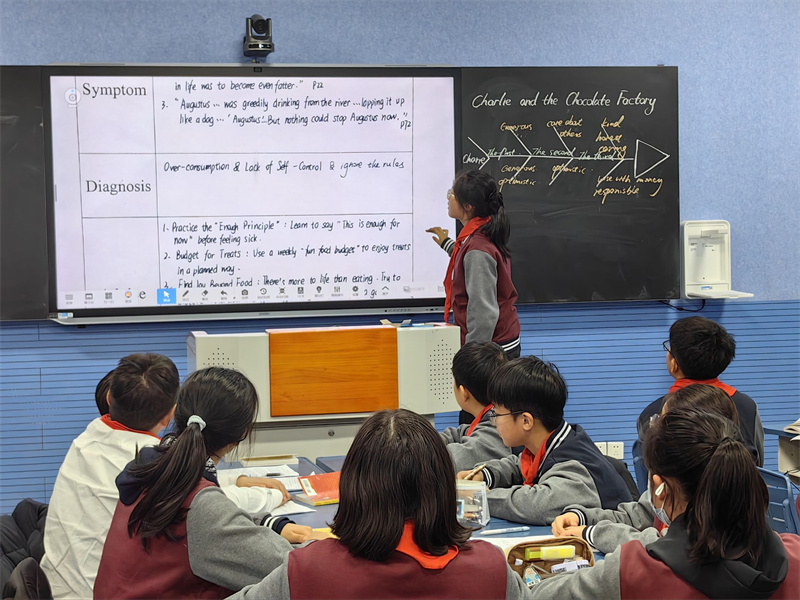 Symptom
in life was to become even fatter." P22
3. "Augustus ... was greedily drinking from the river ... lapping it up
like a dog ... 'Augustus'... But nothing could stop Augustus now."
P72
Diagnosis
Over-consumption & Lack of Self-Control & ignore the rules
1. Practice the "Enough Principle" : Learn to say "This is enough for
now" before feeling sick.
2. Budget for Treats : Use a weekly "fun food budget" to enjoy treats
in a planned way.
3. Find Joy Beyond Food : There's more to life than eating. Try to
Charlie and the Chocolate Factory
Generous
care about
others
kind
honest
caring
Charlie
The first
The second
The third
Generous
optimistic
optimistic
wise with money
responsible